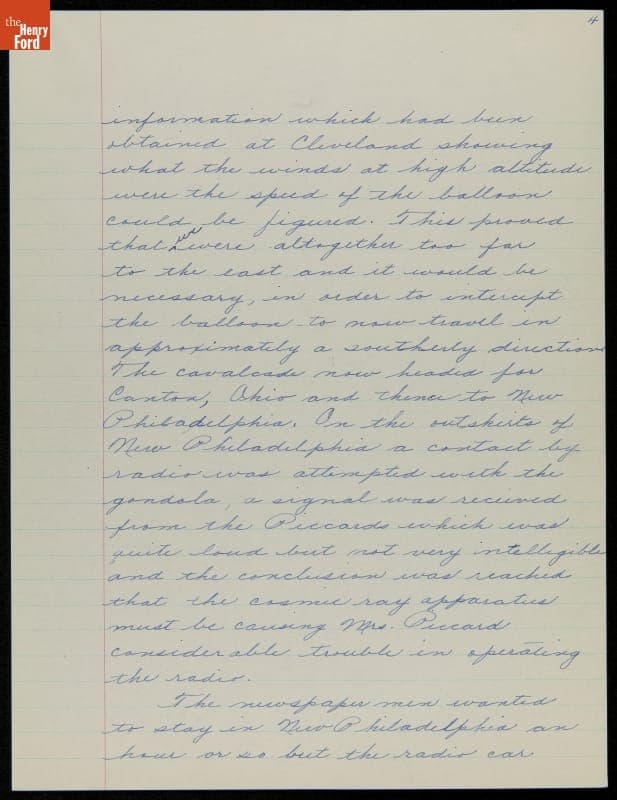 the
Henry
Ford
4
information which had been
obtained at Cleveland showing
what the winds at high altitude
were the speed of the balloon
could be figured. This proved
that we were altogether too far
to the east and it would be
necessary, in order to intercept
the balloon to now travel in
approximately a southerly direction
The cavalcade now headed for
Canton, Ohio and thence to New
Philadelphia. On the outskirts of
New Philadelphia a contact by
radio was attempted with the
gondola, a signal was received
from the Piccards which was
quite loud but not very intelligible
and the conclusion was reached
that the cosmic ray apparatus
must be causing Mrs. Piccard
considerable trouble in operating
the radio.
The newspaper men wanted
to stay in New Philadelphia an
hour or so but the radio car